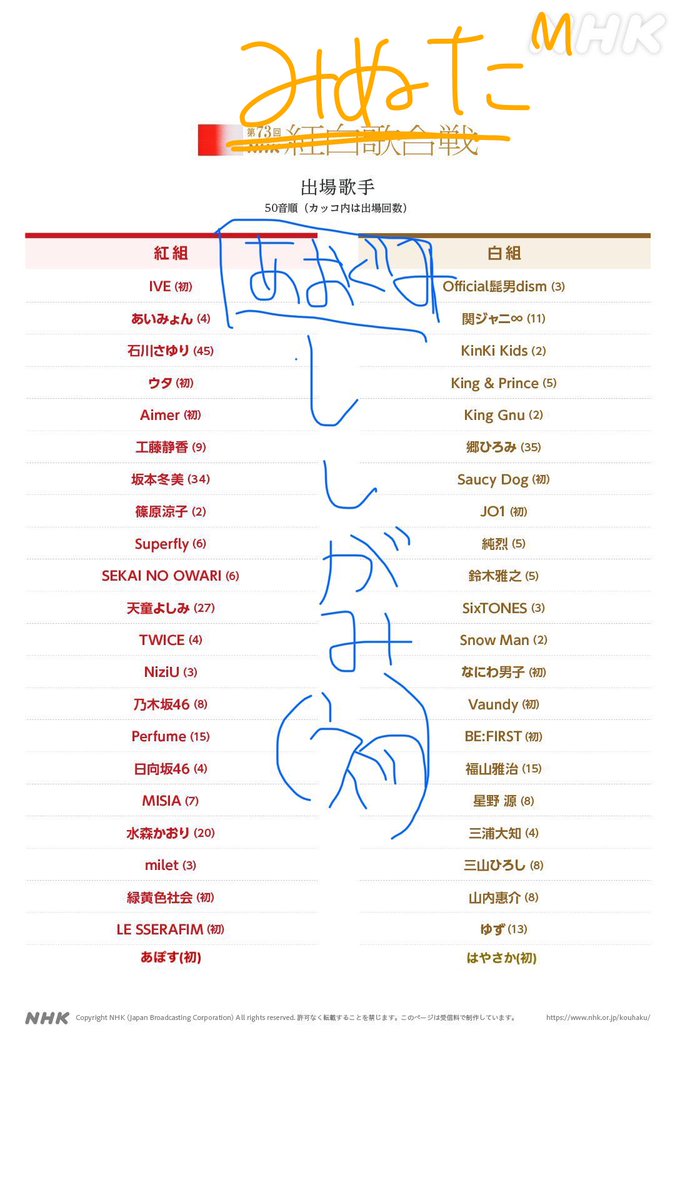 みぬた M
NHK
第73回
NHK 紅白歌合戦
出場歌手
50音順（カッコ内は出場回数）
紅組
IVE (初)
あいみょん (4)
石川さゆり (45)
ウタ (初)
Aimer (初)
工藤静香 (9)
坂本冬美 (34)
篠原涼子 (2)
Superfly (6)
SEKAI NO OWARI (6)
天童よしみ (27)
TWICE (4)
NiziU (3)
乃木坂46 (8)
Perfume (15)
日向坂46 (4)
MISIA (7)
水森かおり (20)
milet (3)
緑黄色社会 (初)
LE SSERAFIM (初)
あぽす(初)
あおぐみ
ししがみ
(初)
白組
Official髭男dism (3)
関ジャニ∞ (11)
KinKi Kids (2)
King & Prince (5)
King Gnu (2)
郷ひろみ (35)
Saucy Dog (初)
JO1 (初)
純烈 (5)
鈴木雅之 (5)
SixTONES (3)
Snow Man (2)
なにわ男子 (初)
Vaundy (初)
BE:FIRST (初)
福山雅治 (15)
星野 源 (8)
三浦大知 (4)
三山ひろし (8)
山内惠介 (8)
ゆず (13)
はやさか(初)
NHK Copyright NHK (Japan Broadcasting Corporation) All rights reserved. 許可なく転載することを禁じます。このページは受信料で制作しています。 https://www.nhk.or.jp/kouhaku/